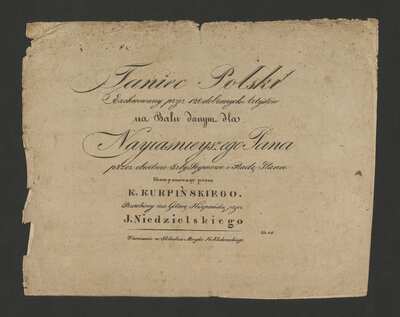 Taniec Polski
Exekwowany przez 120 dobranych Artystów
na Balu danym dla
Nayiasnieyszego Pana
przez obiedwie Izby Seymowe i Radę Stanu
Komponowany przez
K. KURPIŃSKIEGO.
Przełożony na Gitarę Hiszpańską przez
J. Niedzielskiego
w Składzie Muzyki